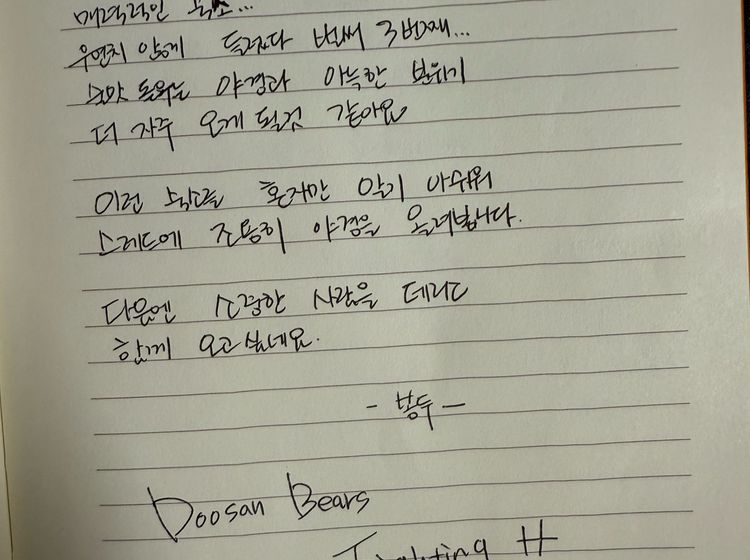 매력적인
우연치 않게 들렸다 벌써 3번째...
술맛 돋우는 야경과 아늑한 분위기
더 자주 오게 될것 같아요
이런 혼자만 알기 아쉬워
스레드에 조용히 야경을 올려봅니다.
다음엔 소중한 사람을 데리고
함께 오고싶네요.
- 봉두 -
Doosan Bears
Fighting